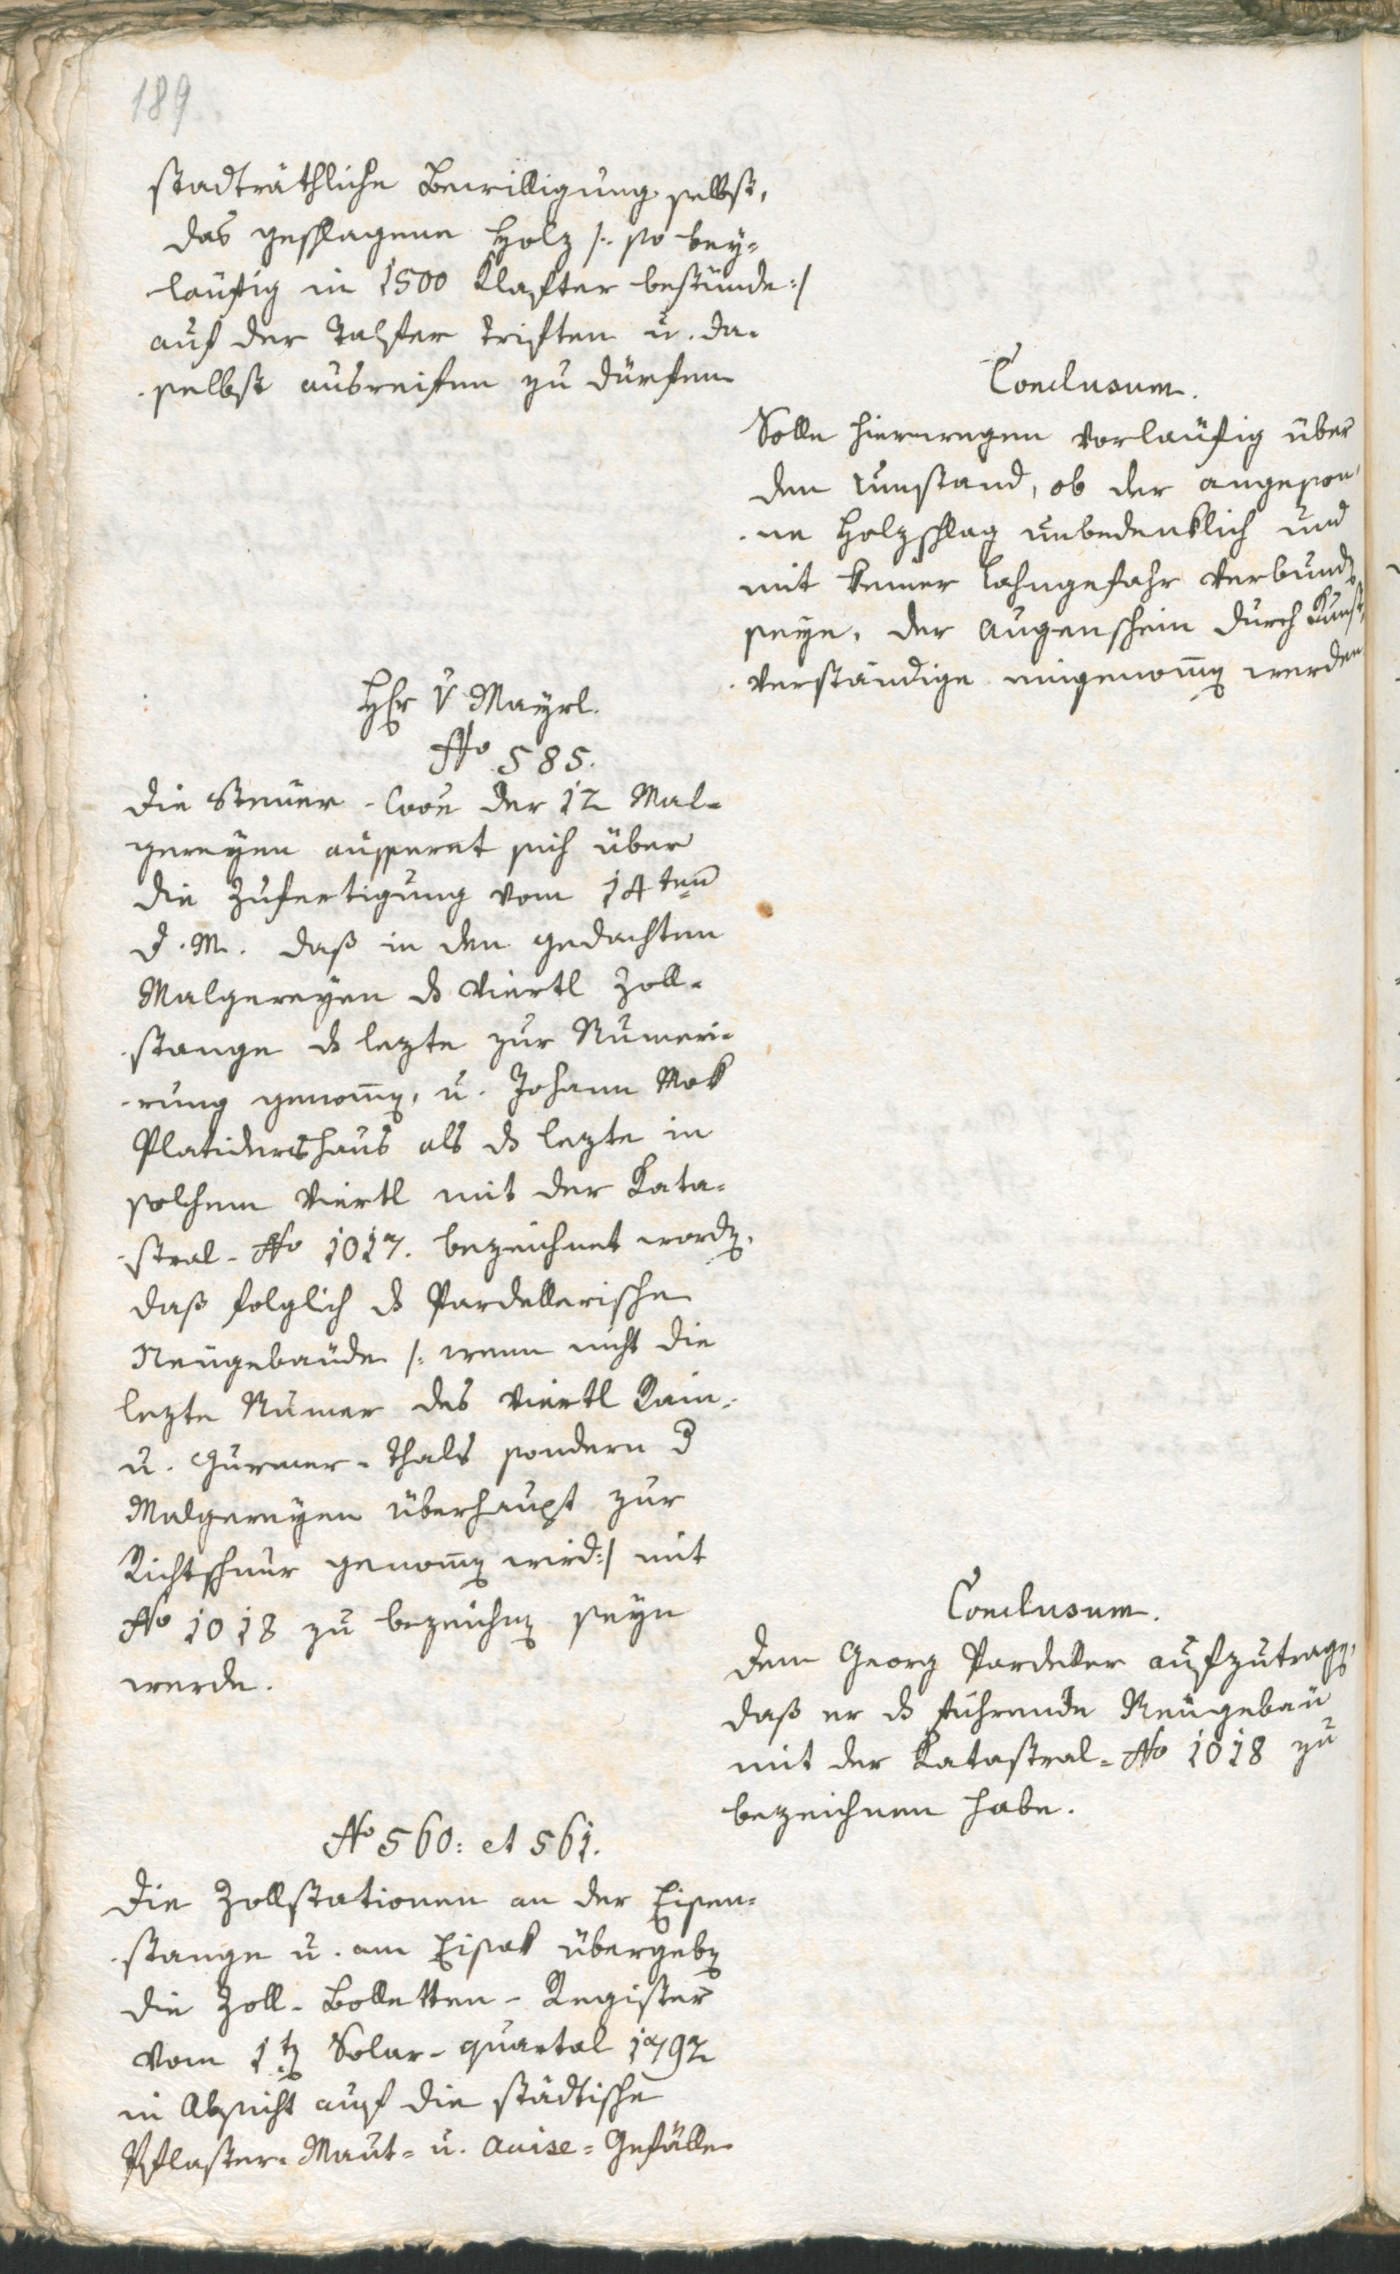 189
stadträthliche Bewilligung selbst,
das geschlagene Holz /: so bey-
läufig in 1500 Klafter bestünde :/
auf der Talfer triften u. da-
selbst ausreifen zu dürfen
Conclusum.
Solle hierwegen vorläufig über
den Umstand, ob der angeson-
ne Holzschlag unbedenklich und
mit keiner Lahngefahr verbunden
seye, der Augenschein durch Kunst-
verständige eingenommen werden
Hr v Mayrl.
No 585.
Die Steuer-Coon der 12 Mal-
gereyen äusseret sich über
die Zufertigung vom 14ten
d. M. daß in den gedachten
Malgereyen ds Viertl Zoll-
stange ds lezte zur Numeri-
rung genommen, u. Johann Mok
Platiders haus als ds lezte in
solchem Viertl mit der Kata-
stral-No 1017. bezeichnet worden,
daß folglich ds Pardellerische
Neugebäude /: wenn nicht die
lezte Numer des Viertl Rain-
u. Gurmer-Thals sondern d
Malgereyen überhaupt zur
Richtschnur genommen wird :/ mit
No 1018 zu bezeichnen seyn
werde.
Conclusum.
Dem Georg Pardeller aufzutragen,
daß er ds führende Neugebäu
mit der Katastral-No 1018 zu
bezeichnen habe.
No 560: et 561.
Die Zollstationen an der Eisen-
stange u. am Eisak übergeben
die Zoll-Bolletten-Register
vom 1ten Solar-quartal 1792
in Absicht auf die städtische
Pflaster-Maut- u. Accise-Gefälle